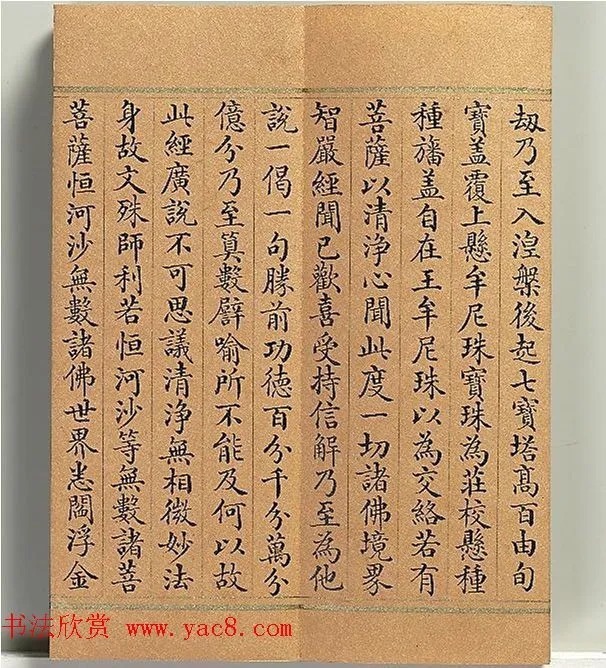 劫乃至入涅槃後起七寶塔高百由旬
寶盖覆上懸牟尼珠寶珠為莊校懸種
種旛盖自在王牟尼珠以為交絡若有
菩薩以清淨心聞此度一切諸佛境界
智嚴經聞已歡喜受持信解乃至為他
說一偈一句勝前功德百分千分萬分
億分乃至算數譬喻所不能及何以故
此經廣說不可思議清淨無相微妙法
身故文殊師利若恒河沙等無數諸菩
菩薩恒河沙無數諸佛世界悉閻浮金
书法欣赏 www.yac8.com